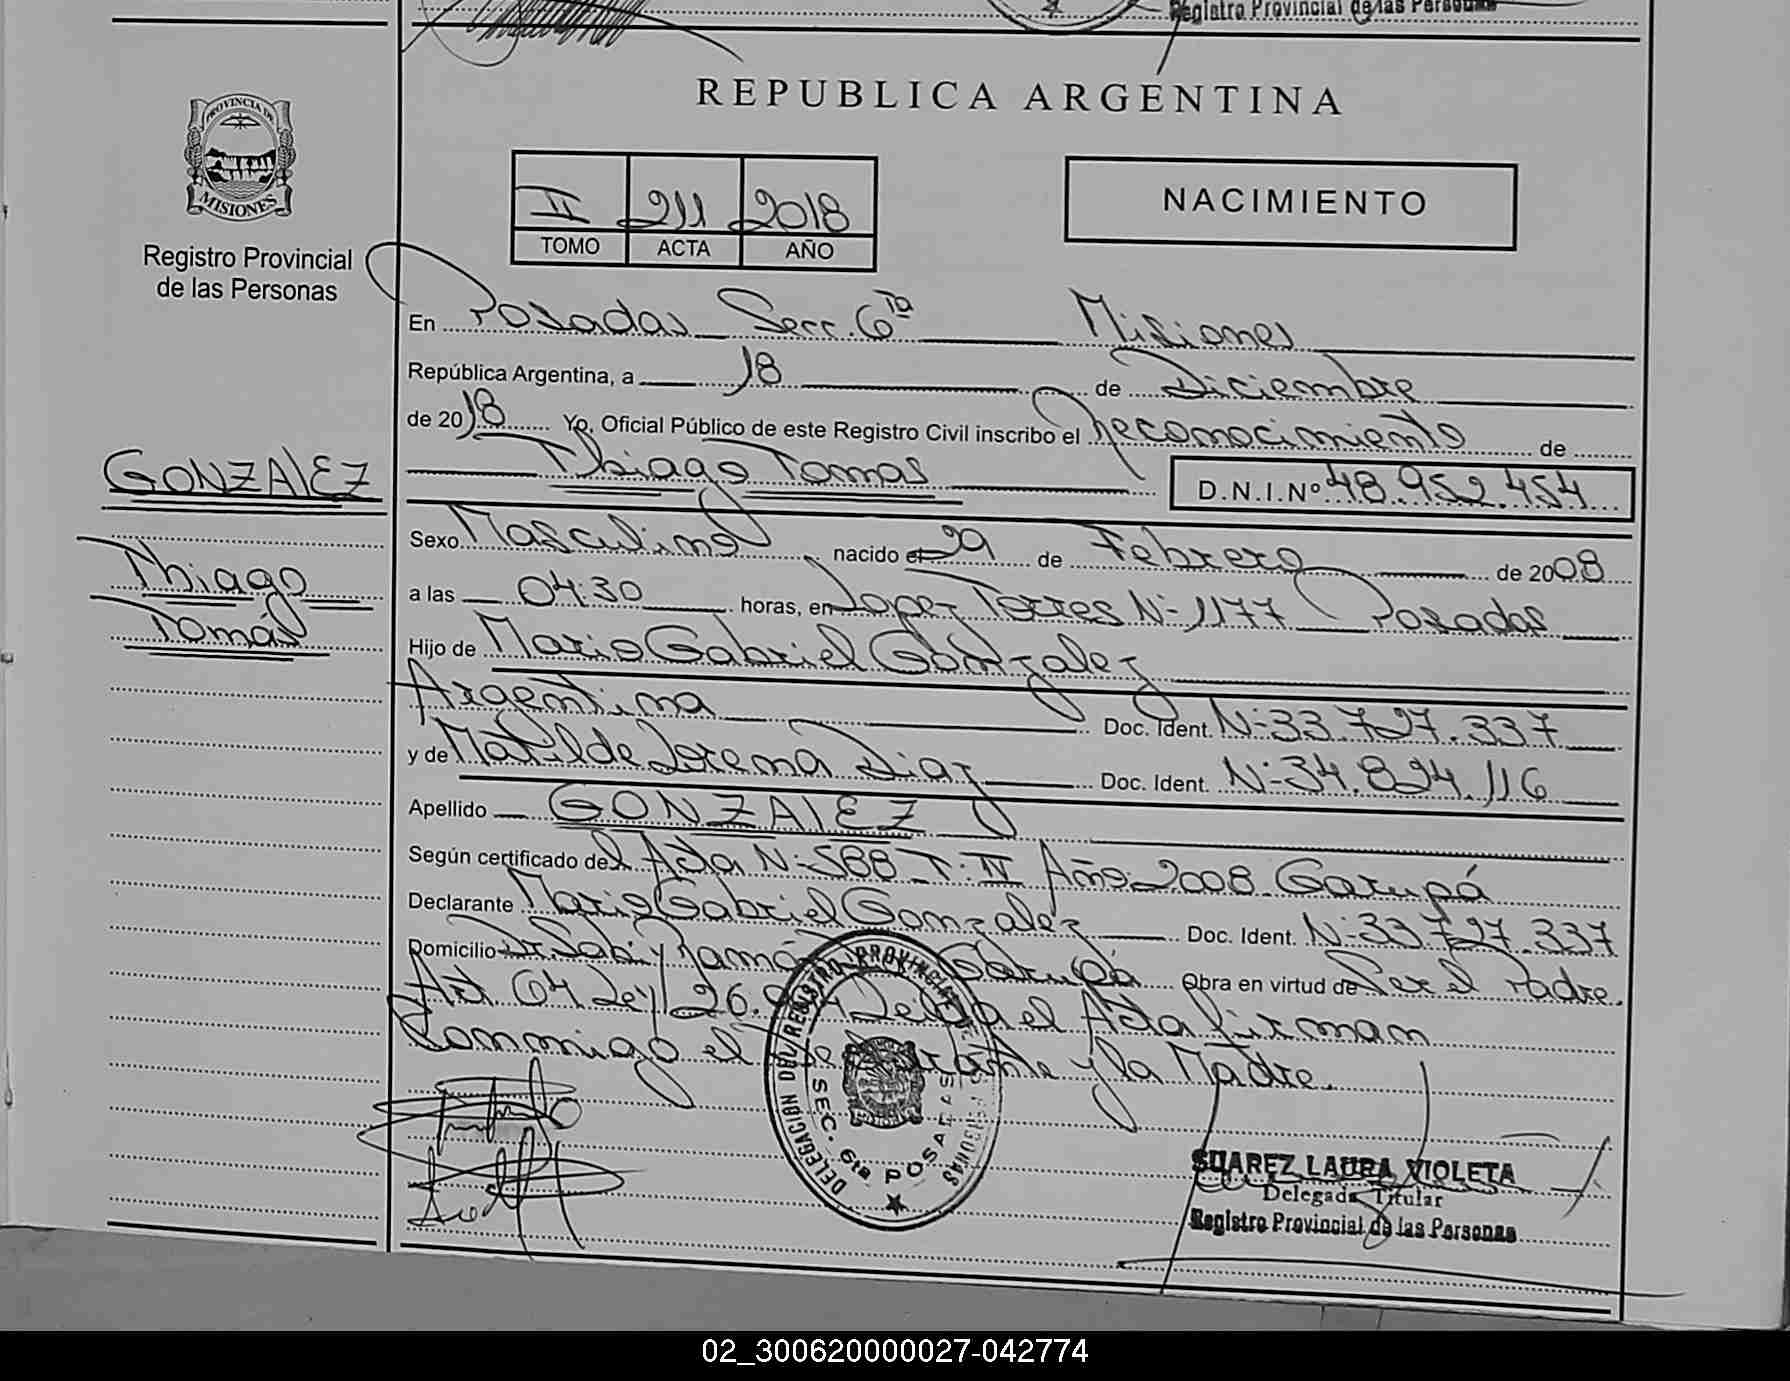 Registro Provincial de las Personas
PROVINCIA DE
MISIONES
Registro Provincial
de las Personas
GONZALEZ
Thiago
Tomás
REPUBLICA ARGENTINA
II 211 2018
TOMO ACTA AÑO
NACIMIENTO
En Posadas Secc. 6ta Misiones
República Argentina, a 18 de Diciembre
de 2018 Yo, Oficial Público de este Registro Civil inscribo el Reconocimiento de
Thiago Tomas D.N.I.Nº 48.952.454
Sexo Masculino nacido el 29 de Febrero de 2008
a las 04:30 horas, en Lopez Torres Nº 1177 Posadas
Hijo de Mario Gabriel Gonzalez
Argentina Doc. Ident. Nº 33.727.337
y de Matilde Lorena Diaz Doc. Ident. Nº 34.824.116
Apellido GONZALEZ
Según certificado del Acta Nº 588 T: IV Año 2008 Garupá
Declarante Mario Gabriel Gonzalez Doc. Ident. Nº 33.727.337
Domicilio Garupá Obra en virtud de Ser el Padre.
Art 64 Ley 26. el Acta firman
Conmigo el y la Madre.
DELEGACIÓN DEL REGISTRO PROVINCIAL DE LAS PERSONAS
SEC. 6ta POSADAS
SUAREZ LAURA VIOLETA
Delegada Titular
Registro Provincial de las Personas
02_300620000027-042774